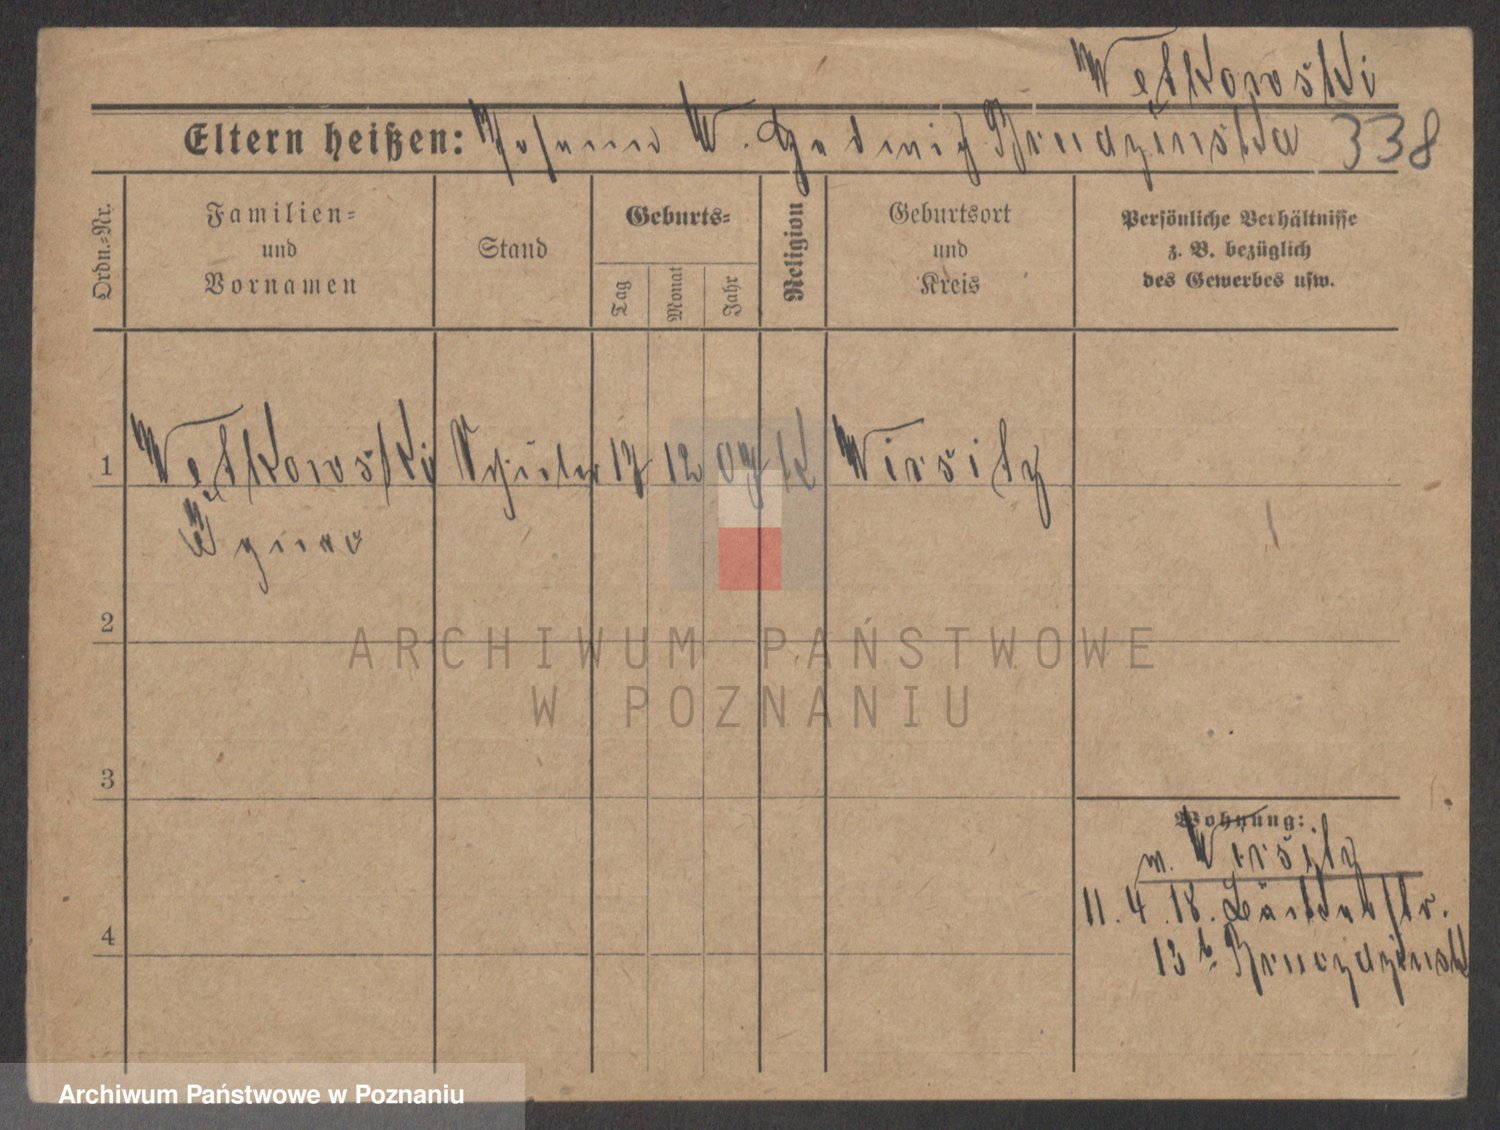 Wetkowski
Eltern heißen: Johann W. Hedwig Brudzinska 338
Ordn.=Nr.
Familien=
und
Vornamen
Stand
Geburts=
Tag
Monat
Jahr
Religion
Geburtsort
und
Kreis
Persönliche Verhältnisse
z. B. bezüglich
des Gewerbes usw.
1 Wetkowski Schüler 17 12 07 K Wirsitz
2
3
4
Wohnung:
w. Wirsitz
11.4.18. Bäckerstr.
13 b.
ARCHIWUM PAŃSTWOWE
W POZNANIU
Archiwum Państwowe w Poznaniu